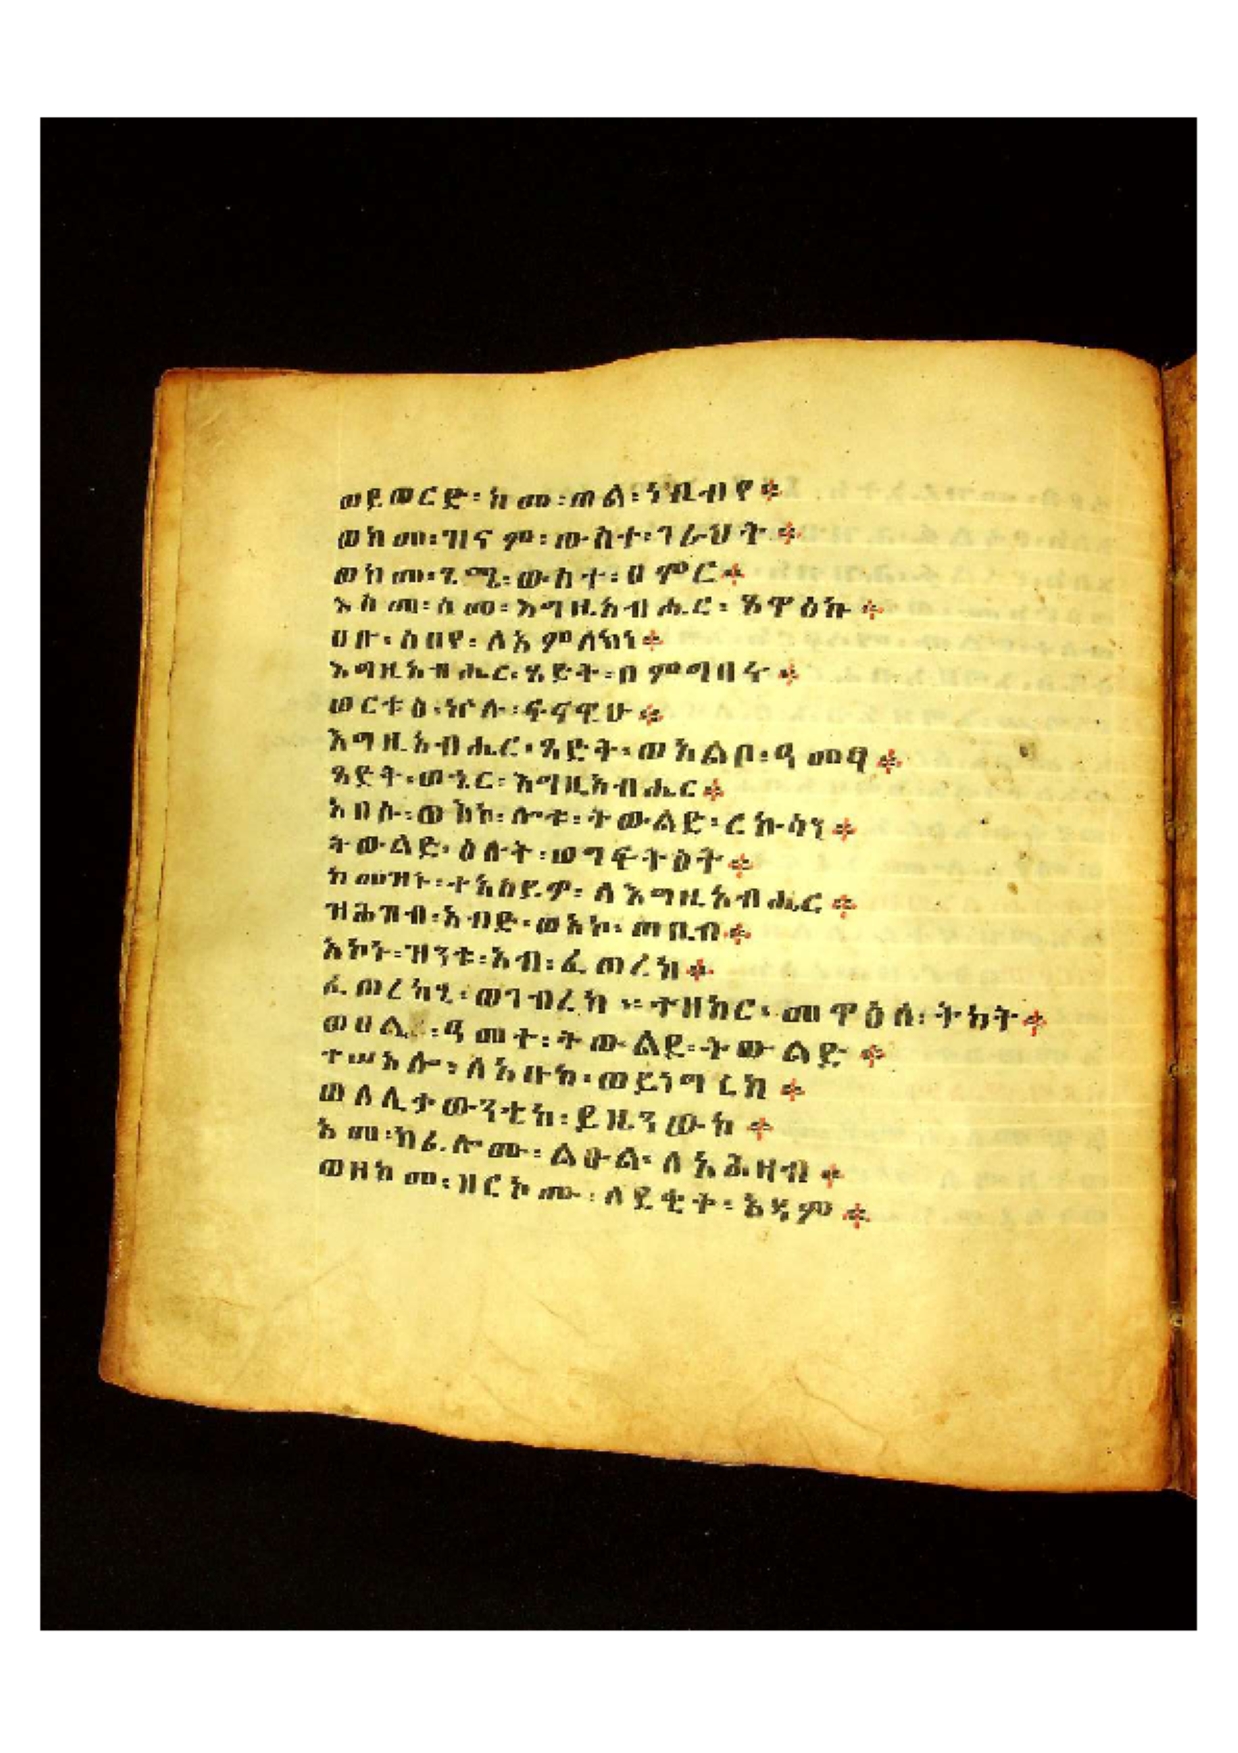 ወይወርድ፡ከመ፡ጠል፡ነቢብየ።
ወከመ፡ዝናም፡ውስተ፡ገራህት።
ወከመ፡ጊሜ፡ውስተ፡ሀሞር።
እስመ፡ስመ፡እግዚአብሔር፡ጸዋዕኩ።
ሀቡ፡ዕበየ፡ለአምላክነ።
እግዚአብሔር፡ጻድት፡በምግባሩ።
ወርቱዕ፡ኵሉ፡ፍናዊሁ።
እግዚአብሔር፡ጻድት፡ወአልቦ፡ዓመፃ።
ጻድት፡ወኄር፡እግዚአብሔር።
አበሱ፡ወአኮ፡ሎቱ፡ትውልድ፡ርኩሳን።
ትውልድ፡ዕሉት፡ወግፍትዕት።
ከመዝኑ፡ተአስይዎ፡ለእግዚአብሔር።
ዝሕዝብ፡አብድ፡ወአኮ፡ጠቢብ።
አኮኑ፡ዝንቱ፡አብ፡ፈጠረከ።
ፈጠረከኒ፡ወገብረከ፡፡ተዘከር፡መዋዕለ፡ትካት።
ወሀሊ፡ዓመተ፡ትውልደ፡ትውልድ።
ተሠአሎ፡ለአቡከ፡ወይነግረከ።
ወለሊቃውንቲከ፡ይዜንውከ።
አመ፡ከፈሎሙ፡ልዑል፡ለአሕዛብ።
ወዘከመ፡ዘርኦሙ፡ለደቂቀ፡አዳም።